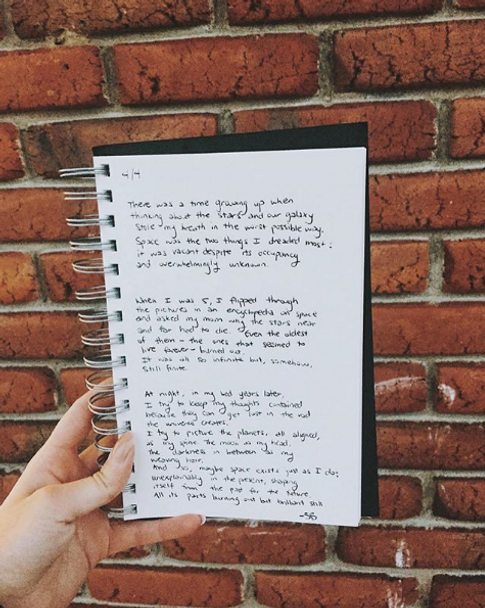 4/4
There was a time growing up when
thinking about the stars and our galaxy
stole my breath in the worst possible way.
Space was the two things I dreaded most:
it was vacant despite its occupancy
and overwhelmingly unknown.
When I was 5, I flipped through
the pictures in an encyclopedia on space
and asked my mom why the stars near
and far had to die. Even the oldest
of them - the ones that seemed to
live forever - burned out.
It was all so infinite but, somehow,
still finite.
At night, in my bed years later,
I try to keep my thoughts contained
because they can get lost in the
the universe creates.
I try to picture the planets, all aligned,
as my spine. The moon as my head.
The darkness in between as my
waving hair.
And so, maybe space exists just as I do:
unexplainably in the present, shaping
itself from the past for the future.
All its parts burning out but brilliant still